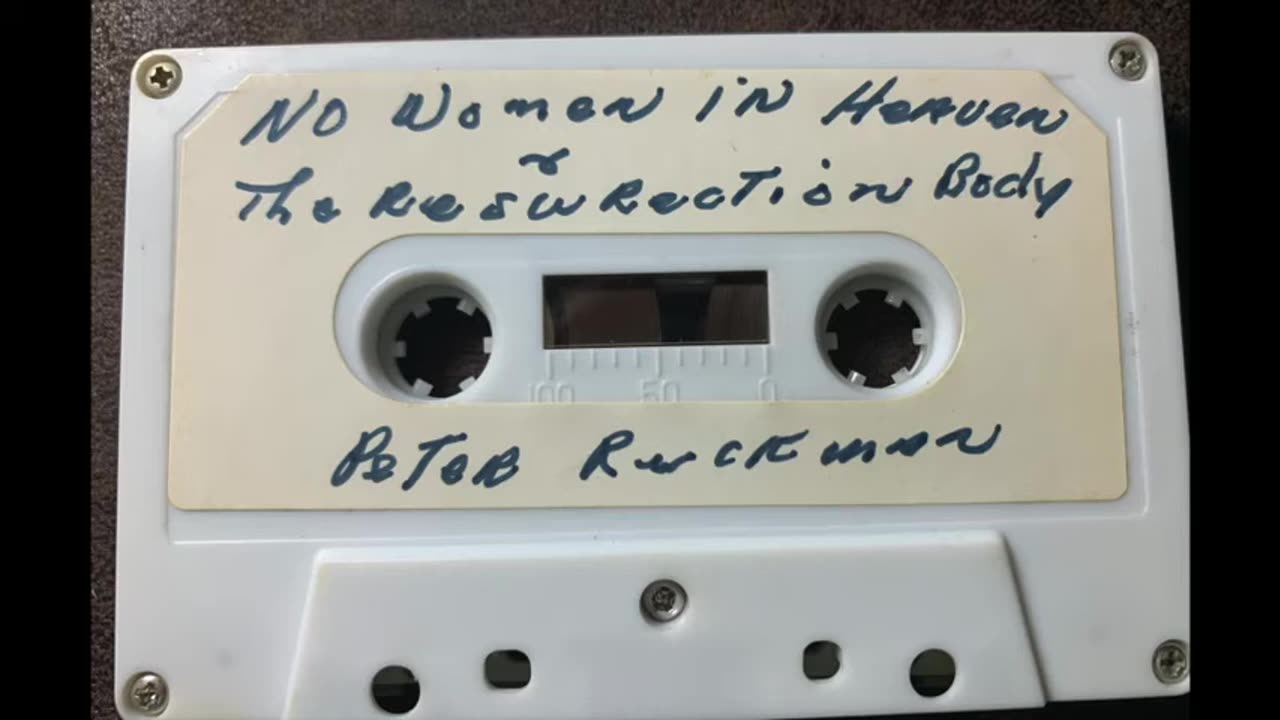 No Women in Heaven
&
The Resurrection Body
100 50 0
Peter Ruckman